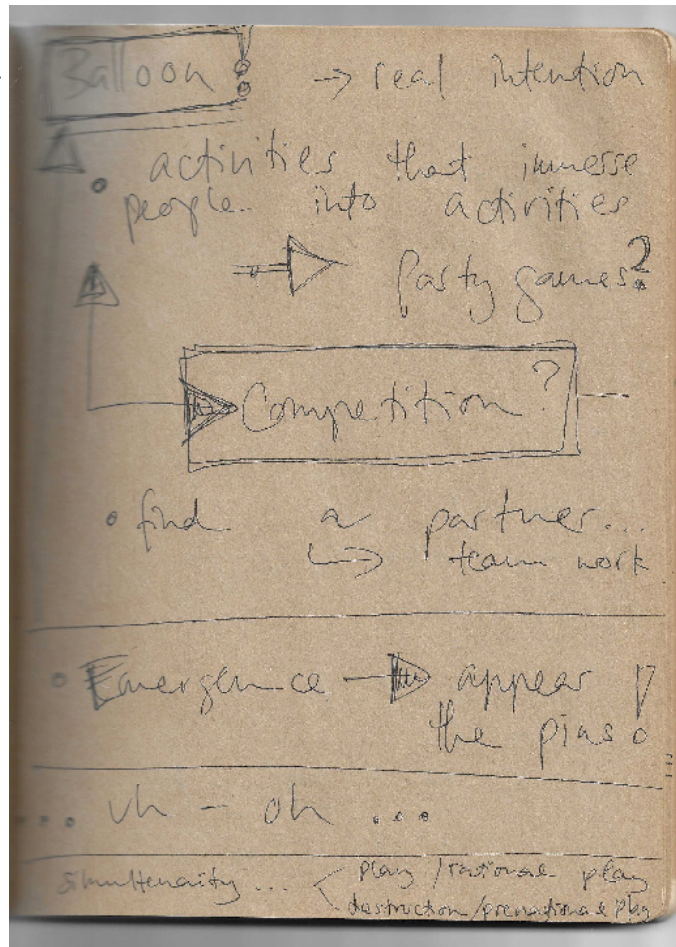 Balloon → real intention
• activities that immesse
people into activities
⇒ Party games?
Competition?
• find a partner...
↳ team work
• Emergence → appear
the pins!
... uh - oh ...
simultenaity ... < play / rational play
destruction / prerational play